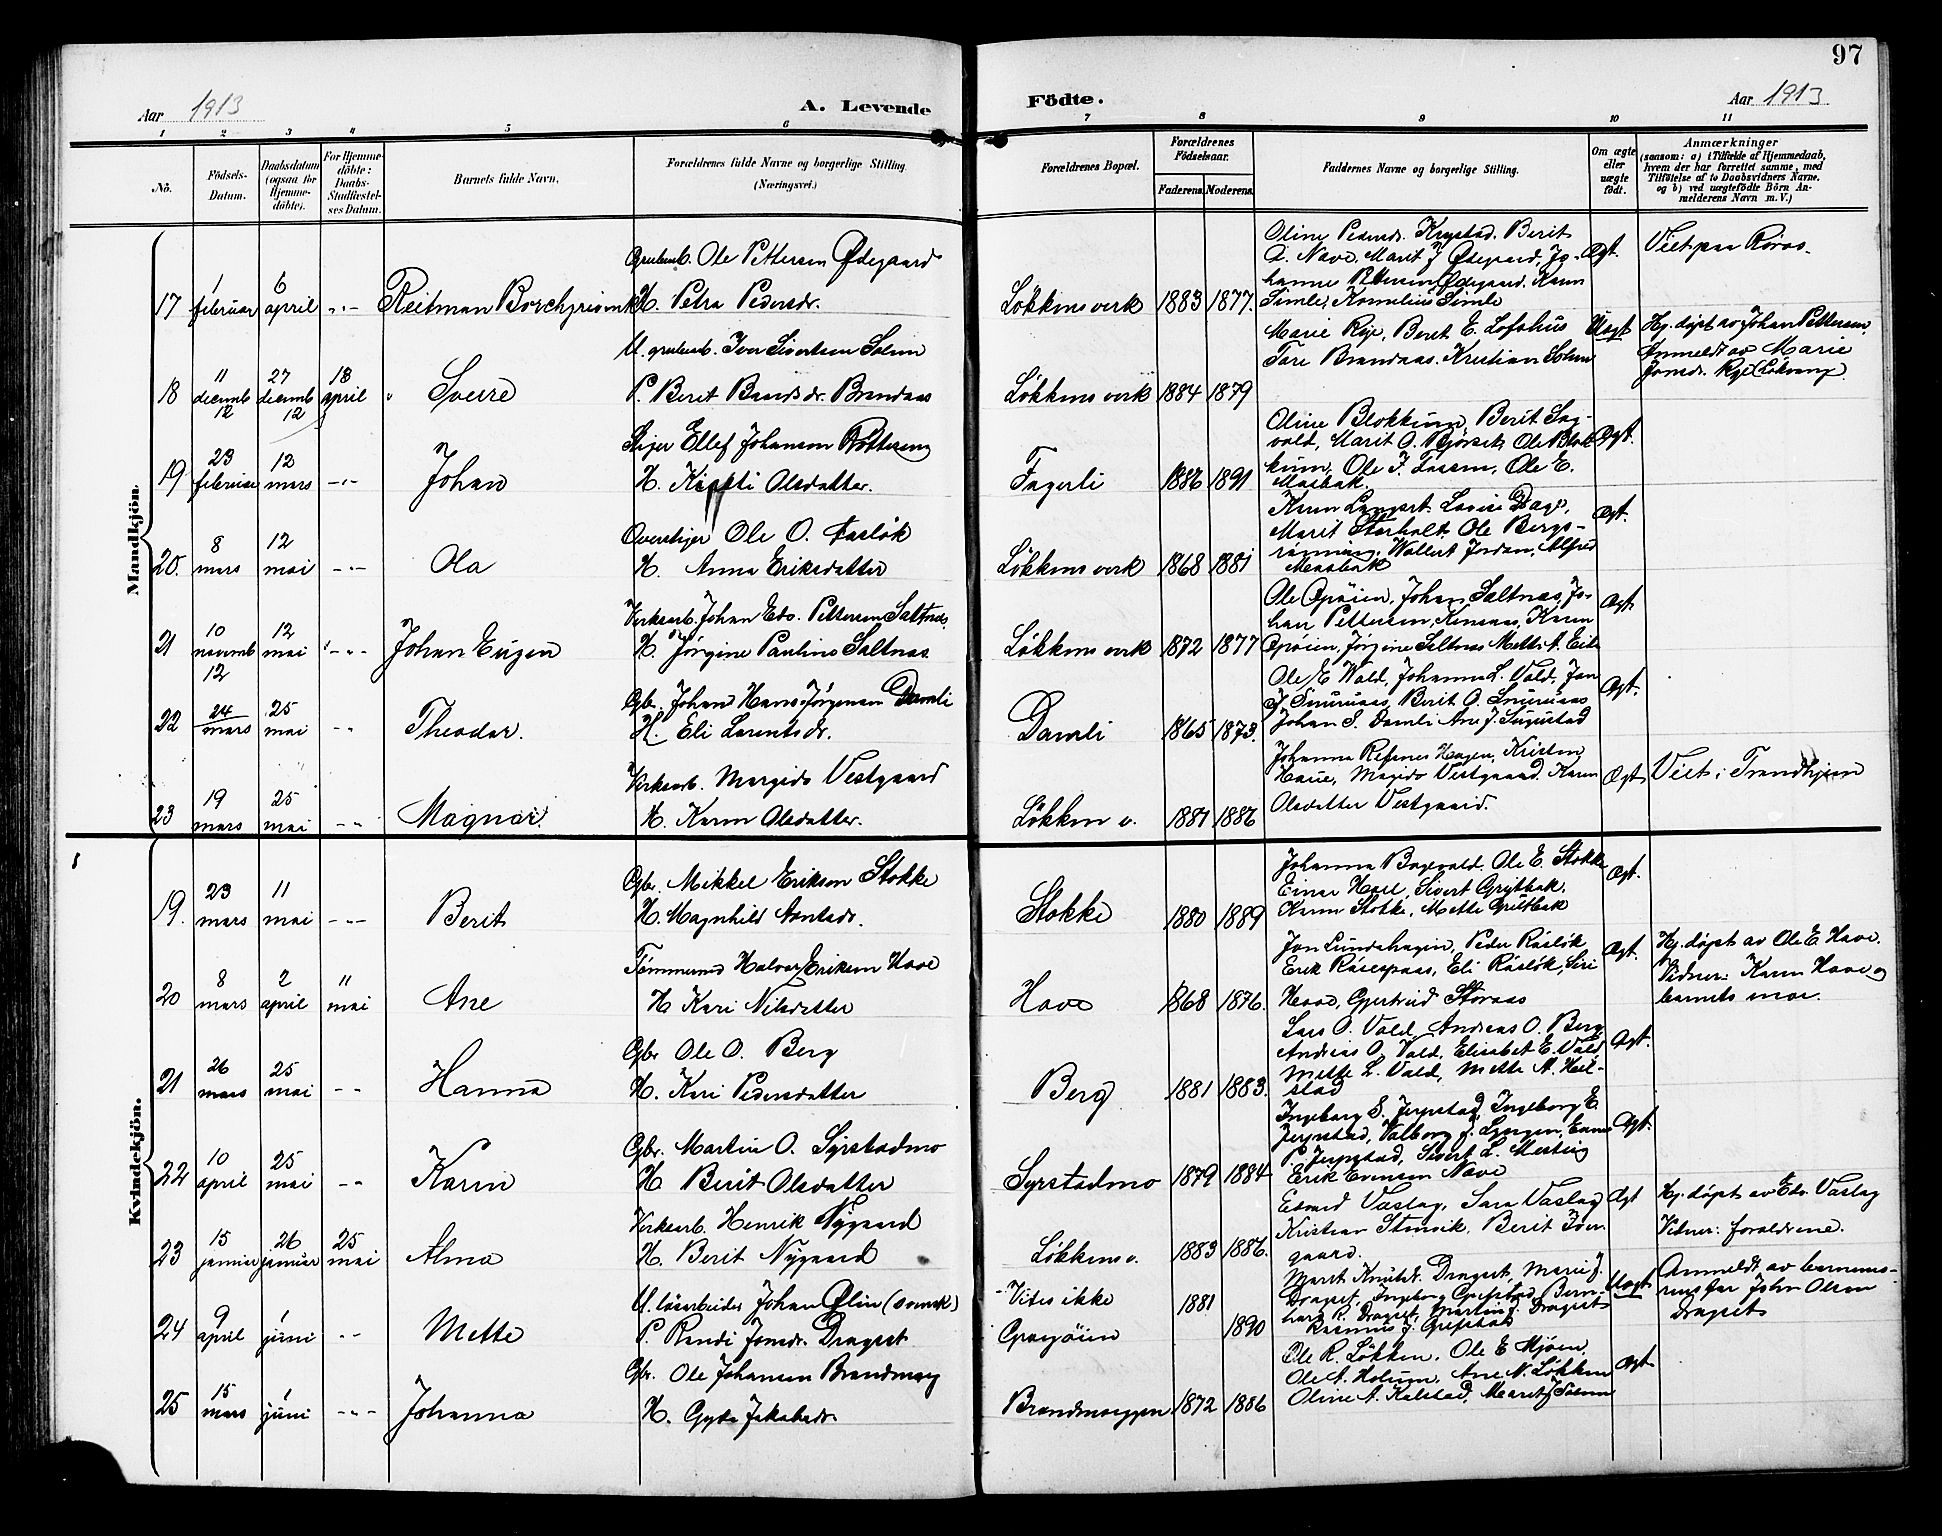 97
Aar 1913
A. Levende
Födte.
Aar 1913
1 2 3 4 5 6 7 8 9 10 11
No.
Födsels-Datum.
Daabsdatum (ogsaa for Hjemme-döbte).
For Hjemme-döbte: Daabs-Stadfæstel-ses Datum.
Barnets fulde Navn.
Forældrenes fulde Navne og borgerlige Stilling (Næringsvei.)
Forældrenes Bopæl.
Forældrenes Födselsaar.
Faderens. Moderens.
Faddernes Navne og borgerlige Stilling.
Om ægte eller uægte födt.
Anmærkninger
(saasom: a) i Tilfælde af Hjemmedaab, hvem der har forrettet samme, med Tilföielse af to Daabsvidners Navne. og b) ved uægtefödte Börn An-melderens Navn m. V.)
Mandkjön.
17
1 februar
6 april
Reitman
Ole Pettersen Ødegaard
H. Petra Pedersdr.
Løkkens verk 1883 1877.
Oline Pedersdr. Krystad. Berit
Nave, Marit J Ødegaard, Jo-
hanne Pettersen Ødegaard. Karen
Simle, Kornelius Simle
Ægt.
Viet paa Røros.
18
11 decemb 12
27 decemb 12
18 april
Sverre
U. grubearb. Iver Sivertsen Solem
P. Berit Brandaas
Løkkens verk 1884 1879
Marie Rye, Beret E. Lofshus
Tore Brandaas. Kristian Solem
Uægt
Hj. døpt av Johan Pettersen.
Anmeldt av Marie
Jonsdr. Rye
19
23 februar
12 mars
Johan
Stiger Ellef Johansen
H. Kirsti Olsdatter.
Fagerli 1886 1891
Oline Blokkum, Berit Sag-
vold, Marit O. Bjørset, Ole Blok
kum, Ole J. Fossem, Ole E.
Ægt.
20.
8 mars
12 mai
Ola
Overstiger Ole O. Aasløk
H. Anna Eriksdatter
Løkkens verk 1868 1881
Karen Langset Lovise Dage,
Marit Storholt, Ole Bergs-
rønning, Wollert Jordan, Alfred
Ægt.
21
10 novemb 12
12 mai
Johan Eugen
Verksarb. Johan Edv. Pettersen Saltnes.
H. Jørgine Pauline Saltnes
Løkkens verk 1872 1877
Ole Opøien, Johan Saltnes, Jo-
han Pettersen, Karen
Opøien, Jørgine Saltnes Mette A.
Ægt
22
24 mars
25 mai
Theodor.
Gbr. Johan Hans Jørgensen Damli
H. Eli Larentsdr.
Damli 1865 1873.
Ole E Wold, Johanne L. Vold, Jon
J Snuruaas, Berit O. Snuruaas
Johan S. Damli Ane J. Sugustad
Ægt.
23
19 mars
25 mai
Magnar.
Verksarb. Margido Vestgaard
H. Karen Olsdatter.
Løkken v. 1887 1886
Johanna Refsnes Hagen, Kristen
Haue, Magido Vestgaard. Karen
Olsdatter Vestgaard.
Ægt
Viet i Trondhjem
Kvindekjön.
19.
23 mars
11 mai
Berit
Gbr. Mikkel Eriksen Stokke
H. Magnhild
Stokke 1880 1889
Johanna Bagevald. Ole E. Stokke
Einar Hoel, Sivert Grytbak,
Karen Stokke, Mette Grytbak
Ægt.
20
8 mars
2 april
11 mai
Ane
Tømmermd Halvor Eriksen Hove
H Kari Nilsdatter
Hove 1868 1876.
Jon Lundshagen, Peder Råsløk
Erik Råsespaas, Eli Råsløk, Siri
Hove, Gjertrud Storaas
Ægt.
Hj. døpt av Ole E. Hove.
Vidner: Karen Hove og
barnets mor.
21
26 mars
25 mai
Hanna
Gbr Ole O. Berg
H. Kari Pedersdatter
Berg 1881 1883.
Lars O. Vold, Andreas O. Berg
Andreas O. Vold, Elisabet E. Vold,
Mette L. Vold, Mette A. Heil-
stad
Ægt.
22
10 april
25 mai
Karin
Gbr. Martin O. Syrstadmo
H. Berit Olsdatter
Syrstadmo 1879 1884
Ingeborg S. Jerpstad, Ingeborg E.
Jerpstad, Valborg J. Syrgjen,
P. Jerpstad, Sivert L. Mesting
Erik Evensen Nave
Ægt.
23
15 januar
26 januar
25 mai
Alma
Verksarb. Henrik Nygaard
H. Berit Nygaard
Løkkens v. 1883 1886.
Edvard Vaslag, Sara Vaslag
Kristian Stenvik, Berit Iver-
gaard.
Ægt
Hj. døpt av Edv. Vaslag
Vidner: foraldrene.
24
9 april
1 juni
Mette
U. løsarbeider Johan Ølin (svensk)
P. Randi Jonsdr. Dragset
Vites ikke 1881
Gragøien 1890
Marit Knutsd. Dragset, Marie J.
Dragset, Ingeborg Grefstad Bern-
hard R. Dragset, Martin J. Dragset
Rasmus J. Grefstad
Uægt
Anmeldt av barnemo-
rens far John Olsen
Dragset
25
15 mars
1 juni
Johanna
Gbr. Ole Johansen Brandmoeg
H. Gyda Jakobsdr.
Brandmoeggen 1872 1886
Ole R. Løkken, Ole E Mjøen,
Ole A. Holum, Ane N. Løkken
Oline A. Kalstad, Marit J Solem
Ægt